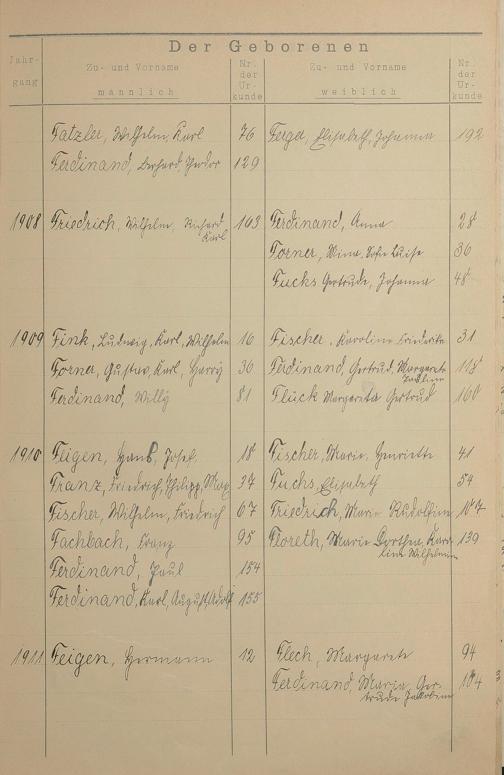 Der Geborenen
Jahr-
gang
Zu- und Vorname
männlich
Nr.
der
Ur-
kunde
Zu- und Vorname
weiblich
Nr.
der
Ur-
kunde
Fatzler, Wilhelm, Karl 76 Ferger, Elisabeth, Johanna 192
Ferdinand, Gerhard, Theodor 129
1908 Friedrich, Wilhelm, Richard 163 Ferdinand, Anna 28
Karl
Forner, Mina, Sofie Luise 36
Fuchs Gertrude, Johanna 48
1909 Fink, Ludwig, Karl, Wilhelm 16 Fischer, Karoline Friederike 31
Forner, Gustav, Karl, Harry 36 Ferdinand, Gertrud, Margarete 118
Ferdinand, Willy 81 Flück Margareta Gertrud 160
1910 Feigen, Hans, Josef 18 Fischer, Marie, Henriette 41
Franz, Friedrich, Philipp, Max 37 Fuchs, Elisabeth 54
Fischer, Wilhelm, Friedrich 67 Friedrich, Marie Rudolfine 107
Fachbach, Franz 95 Floreth, Marie Dorthea, Karo- 139
line Wilhelmine
Ferdinand, Paul 154
Ferdinand, Karl, August, Adolf 155
1911 Feigen, Hermann 12 Flech, Margarete 94
Ferdinand, Maria, Ger- 104
trude Jakobine